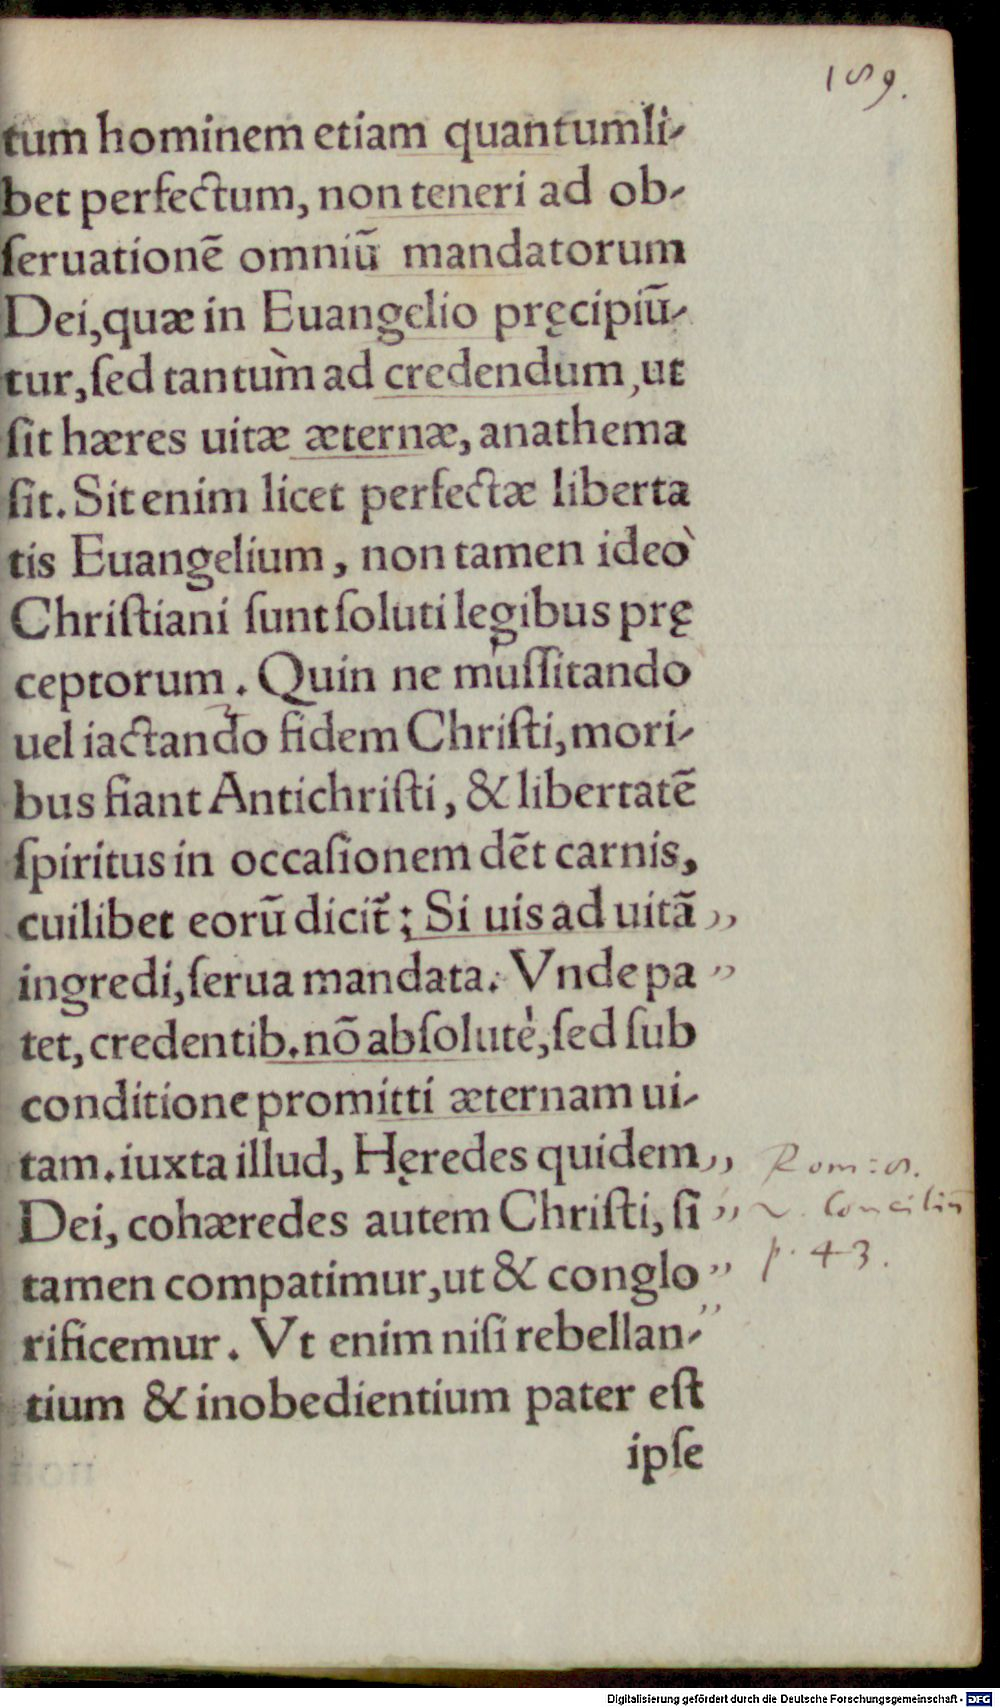 189.
tum hominem etiam quantumli-
bet perfectum, non teneri ad ob-
ſeruationẽ omniũ mandatorum
Dei, quæ in Euangelio pręcipiũ-
tur, ſed tantum̀ ad credendum, ut
ſit hæres uitæ æternæ, anathema
ſit. Sit enim licet perfectæ liberta
tis Euangelium, non tamen ideò
Chriſtiani ſunt ſoluti legibus prę
ceptorum. Quin ne muſſitando
uel iactando fidem Chriſti, mori-
bus fiant Antichriſti, & libertatẽ
ſpiritus in occaſionem dẽt carnis,
cuilibet eorũ dicit̃: Si uis ad uitã ,,
ingredi, ſerua mandata. Vnde pa ,,
tet, credentib. nõ abſolutè, ſed ſub
conditione promitti æternam ui-
tam. iuxta illud, Hęredes quidem ,,
Dei, cohæredes autem Chriſti, ſi ,,
tamen compatimur, ut & conglo ,,
rificemur. Vt enim niſi rebellan- ,,
tium & inobedientium pater eſt
ipſe
Rom: 8.
v. Conciliũ
p. 43.
Digitalisierung gefördert durch die Deutsche Forschungsgemeinschaft - DFG